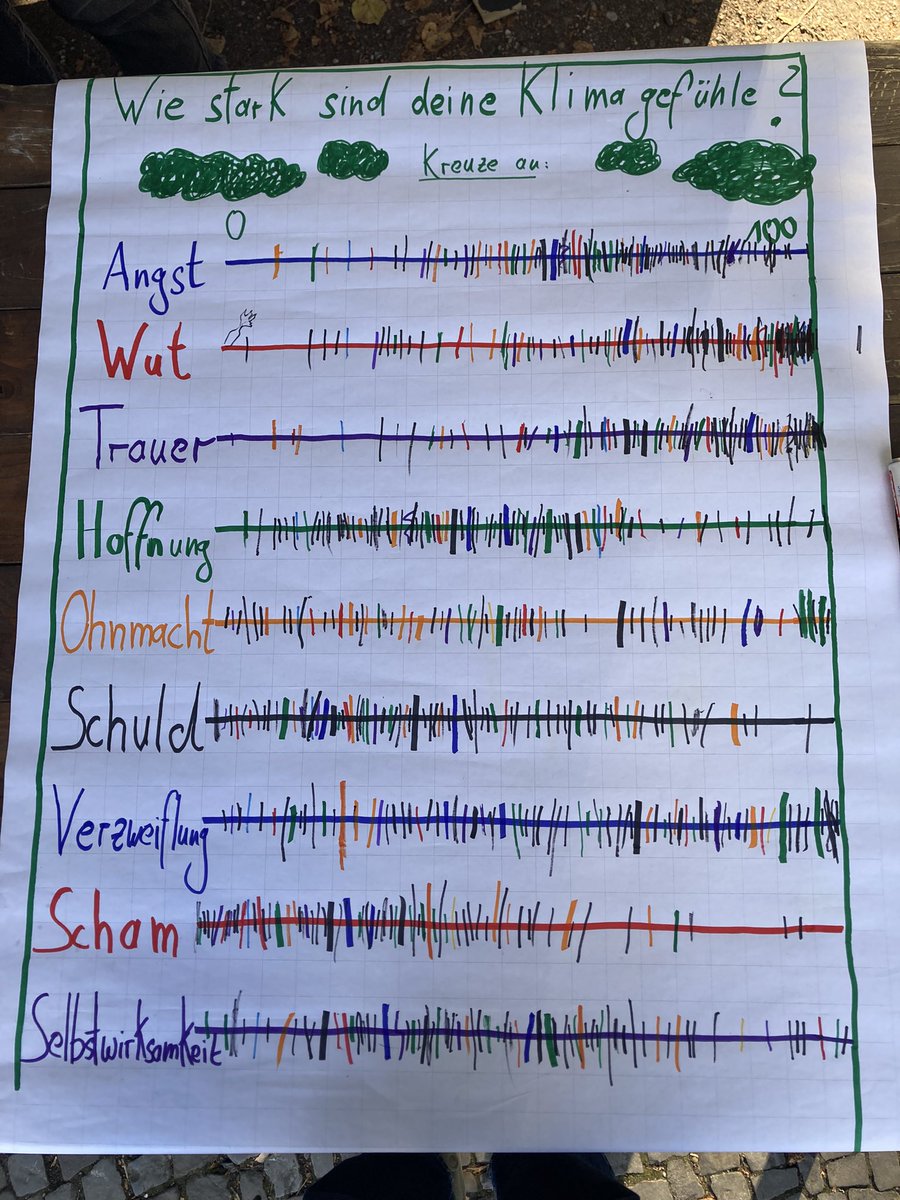 Wie stark sind deine Klimagefühle?
Kreuze an:
0 100
Angst
Wut
Trauer
Hoffnung
Ohnmacht
Schuld
Verzweiflung
Scham
Selbstwirksamkeit